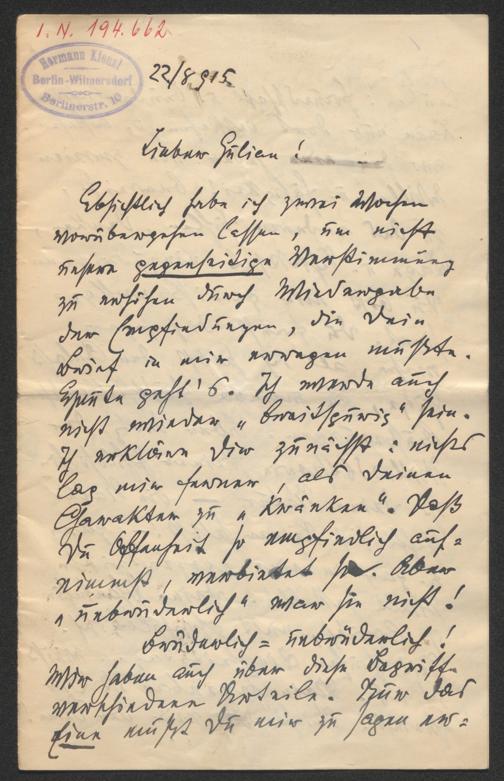 I. N. 194.662
Hermann Kienzl
Berlin-Wilmersdorf
Berlinerstr. 10
22/8 915
Lieber Julian!
Absichtlich habe ich zwei Wochen
vorübergehen lassen, um nicht
unsere gegenseitige Verstimmung
zu erhöhen durch Wiedergabe
der Empfindungen, die Dein
Brief in mir erregen mußte.
Heute geht's. Ich werde auch
nicht wieder „breitspurig" sein.
Ich erkläre Dir zunächst: nichts
lag mir ferner, als Deinen
Charakter zu „kränken". Daß
Du Offenheit so empfindlich auf=
nimmst, verbietet sie. Aber
„unbrüderlich" war sie nicht!
Brüderlich = unbrüderlich!
Wir haben auch über diese Begriffe
verschiedene Urteile. Nur das
Eine mußt Du mir zu sagen er=